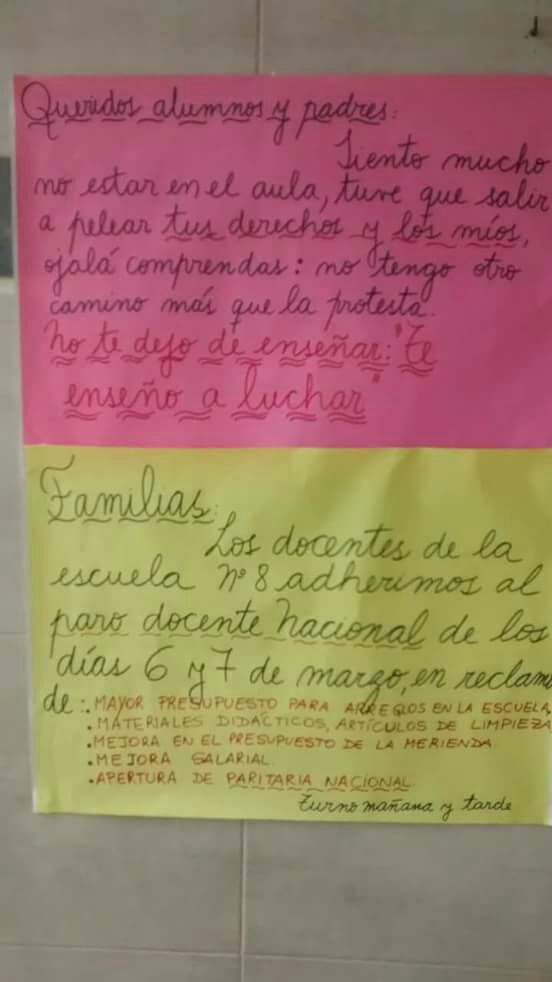 Queridos alumnos y padres:
Siento mucho
no estar en el aula, tuve que salir
a pelear tus derechos y los míos,
ojalá comprendas: no tengo otro
camino más que la protesta.
No te dejo de enseñar: "Te
enseño a luchar"
Familias:
Los docentes de la
escuela nº 8 adherimos al
paro docente nacional de los
días 6 y 7 de marzo, en reclam
de: • MAYOR PRESUPUESTO PARA ARREGLOS EN LA ESCUELA,
• MATERIALES DIDÁCTICOS, ARTÍCULOS DE LIMPIEZA
• MEJORA EN EL PRESUPUESTO DE LA MERIENDA
• MEJORA SALARIAL.
• APERTURA DE PARITARIA NACIONAL.
turno mañana y tarde